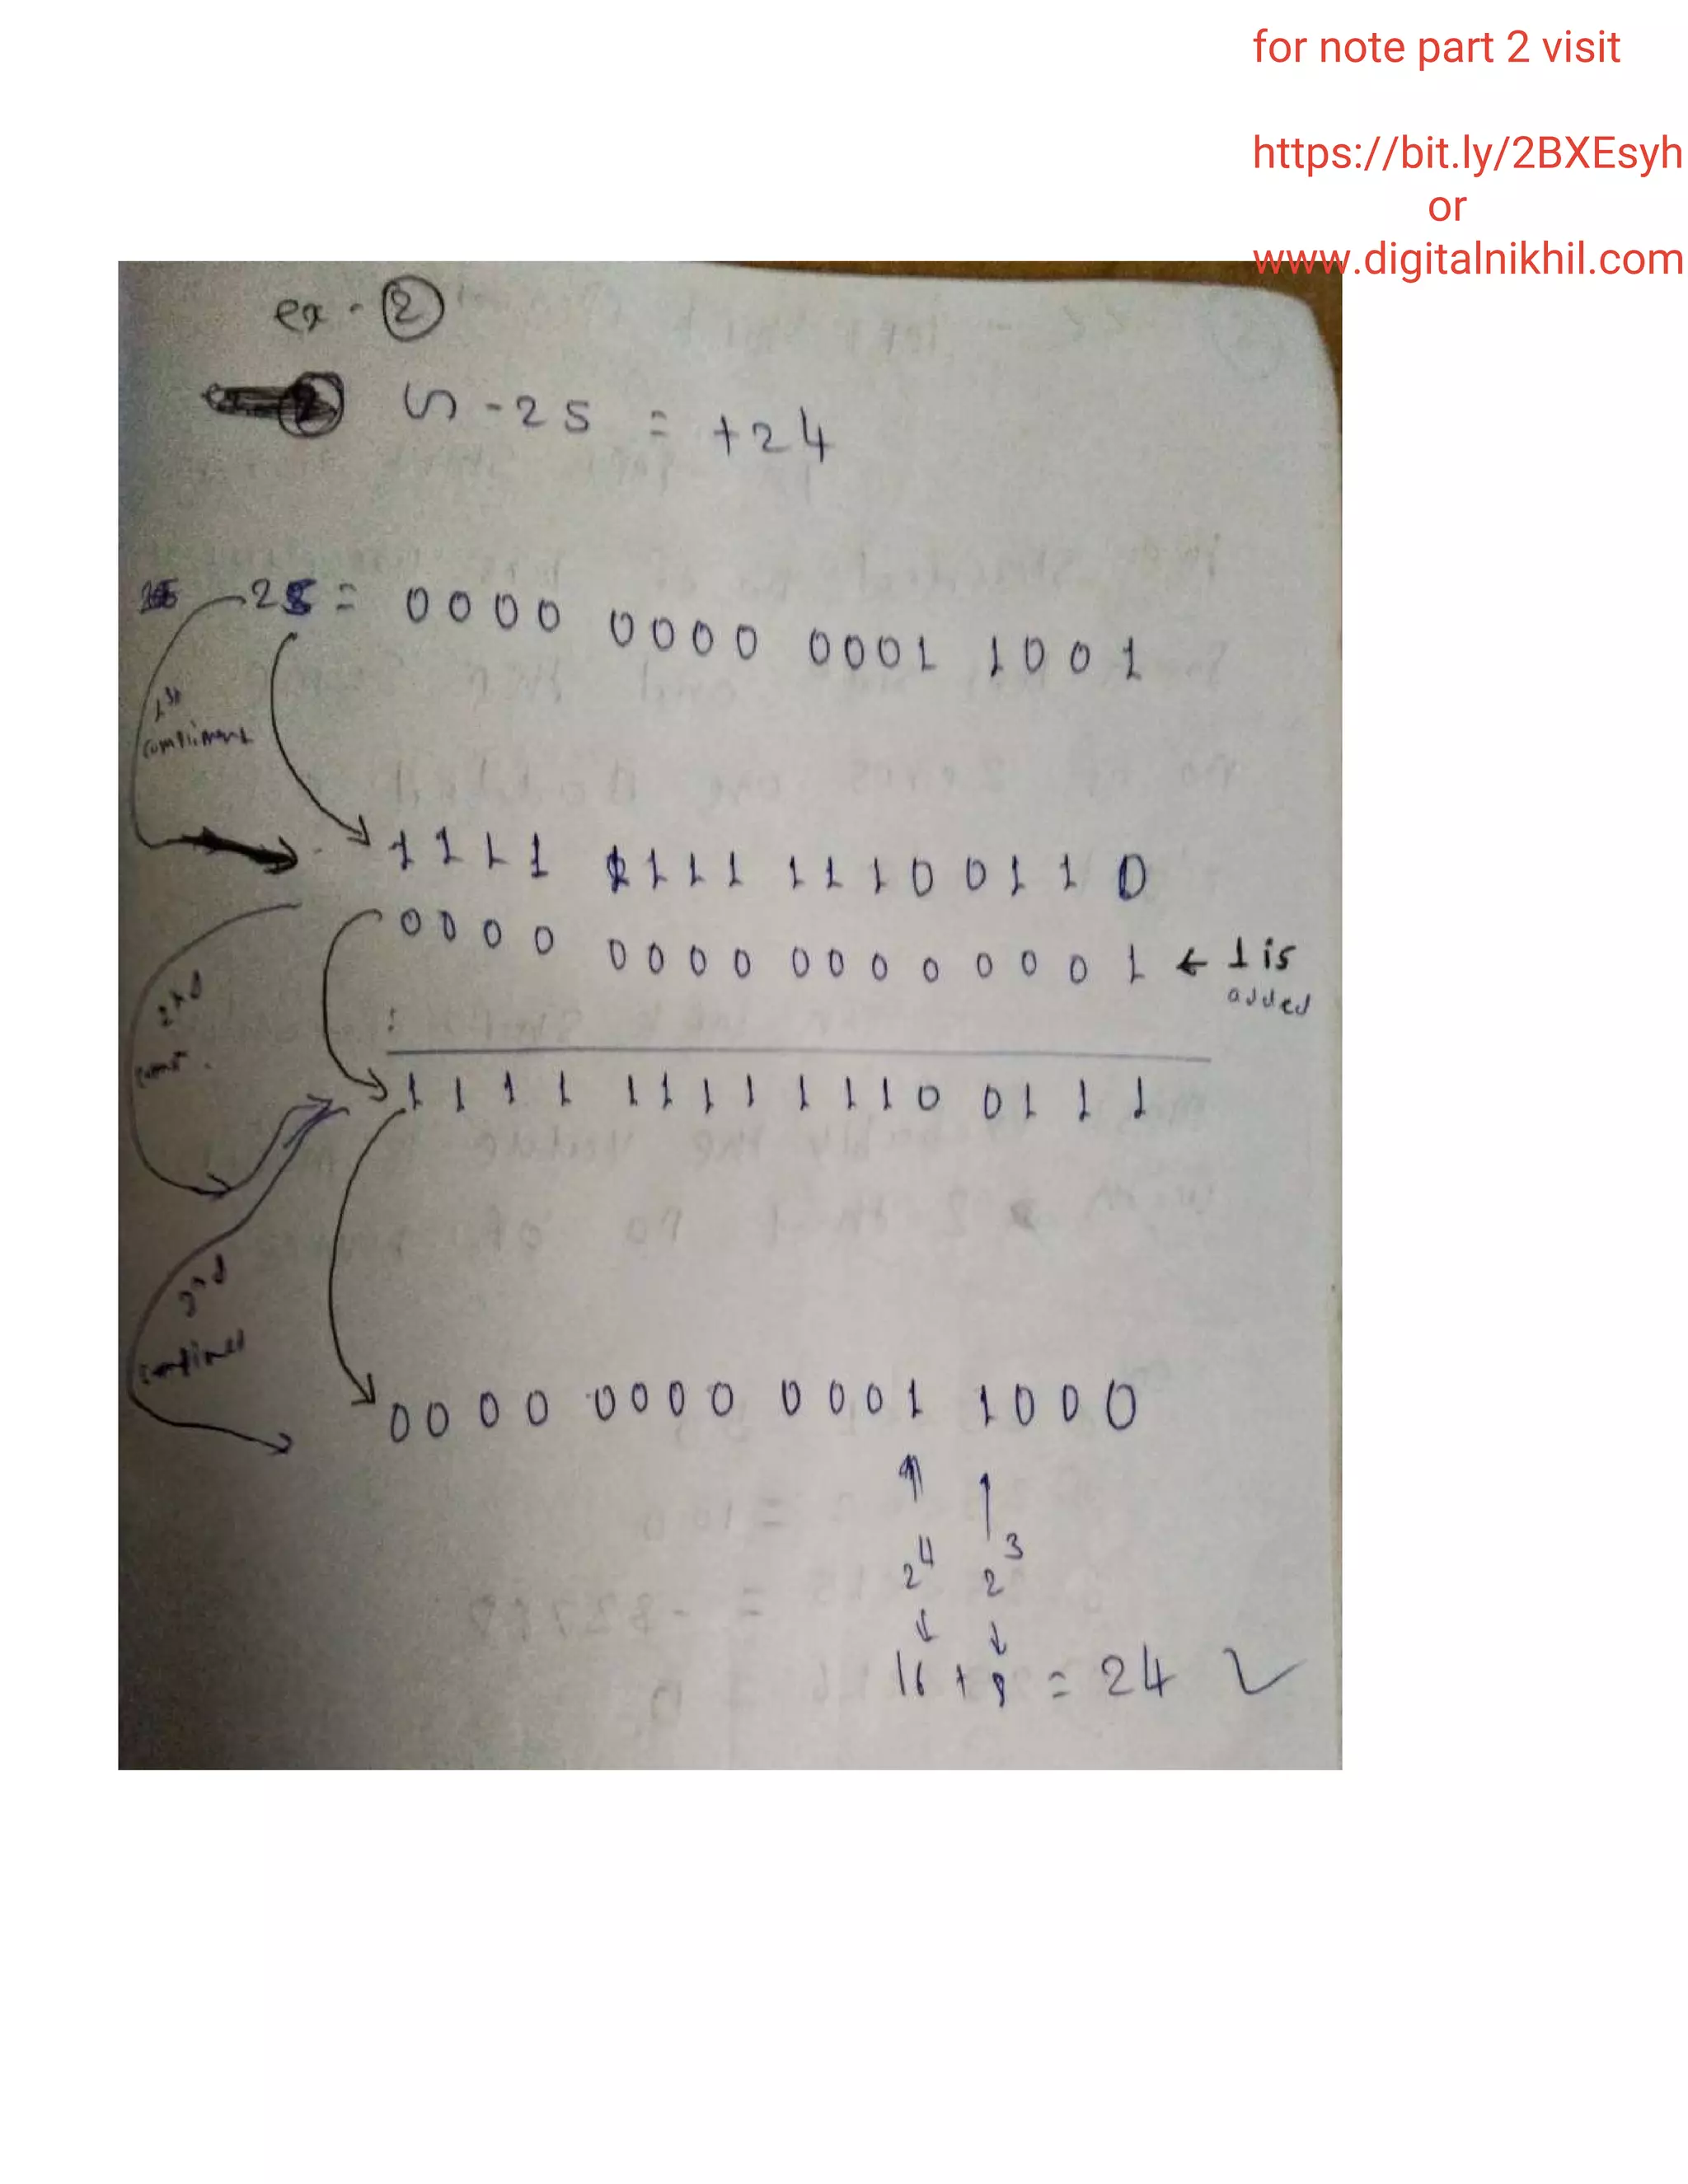 for note part 2 visit
https://bit.ly/2BXEsyh
or
www.digitalnikhil.com
ex - 2
~ -25 = +24
-25 = 0000 0000 0001 1001
1st
compliment
1111 1111 1110 0110
0000 0000 0000 0001 ← 1 is
added
2nd
1111 1111 1110 0111
3rd
0000 0000 0001 1000
2^4 2^3
16 + 8 = 24 ✓